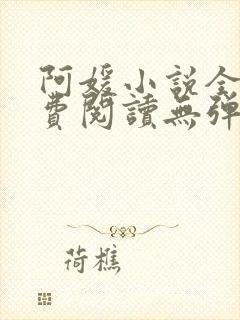 阿媛小说全
費閱讀無彈
荷樵